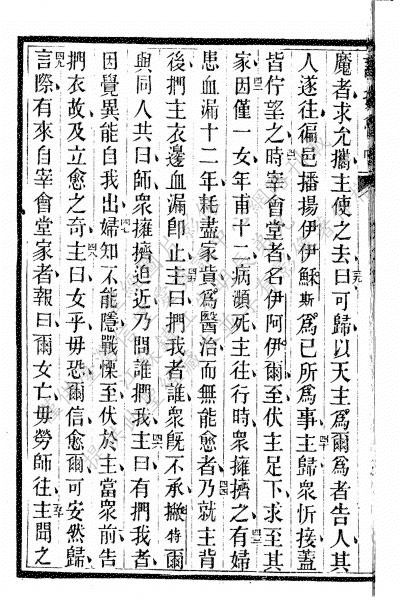 魔者求允攜主使之去曰可歸以天主爲爾爲者告人其
人遂往徧邑播揚伊伊穌斯爲已所爲事主歸衆忻接蓋
皆佇望之時宰會堂者名伊阿伊爾至伏主足下求至其
家因僅一女年甫十二病瀕死主往行時衆擁擠之有婦
患血漏十二年耗盡家貲爲醫治而無能愈者乃就主背
後捫主衣邊血漏卽止主曰捫我者誰衆旣不承撇特爾
與同人共曰師衆擁擠迫近乃問誰捫我主曰有捫我者
因覺異能自我出婦知不能隱戰慄至伏於主當衆前告
捫衣故及立愈之奇主曰女乎毋恐爾信愈爾可安然歸
言際有來自宰會堂家者報曰爾女亡毋勞師往主聞之
三九
四十
四一
四二
四三
四五
四六
四七
四八
四九
五十